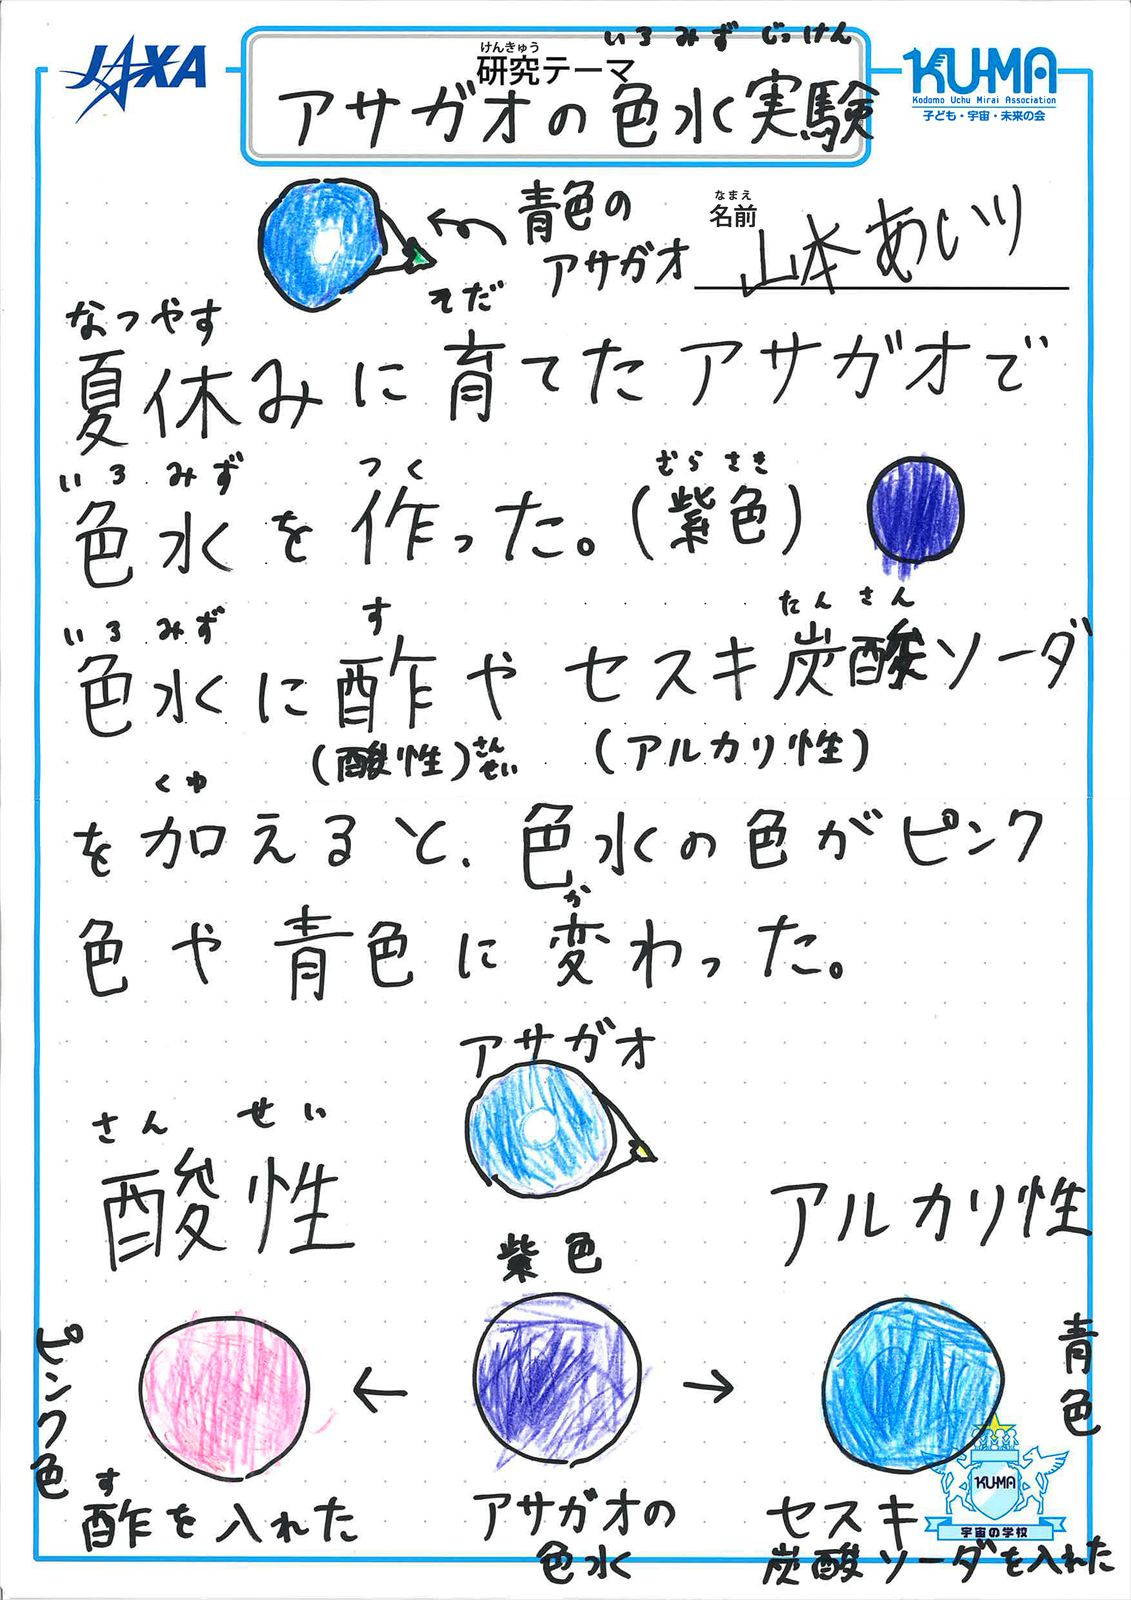 JAXA
いろみずじっけん
けんきゅう
研究テーマ
アサガオの色水実験
KU-MA
Kodomo Uchu Mirai Association
子ども・宇宙・未来の会
青色の
アサガオ
なまえ
名前
山本あいり
なつやす そだ
夏休みに育てたアサガオで
いろみず つく むらさき
色水を作った。(紫色)
いろみず す たんさん
色水に酢やセスキ炭酸ソーダ
(酸性)さんせい (アルカリ性)
くわ
を加えると、色水の色がピンク
か
色や青色に変わった。
アサガオ
さんせい
酸性
アルカリ性
紫色
ピンク色
青色
す
酢を入れた
アサガオの
色水
セスキ
炭酸ソーダを入れた
KU-MA
宇宙の学校